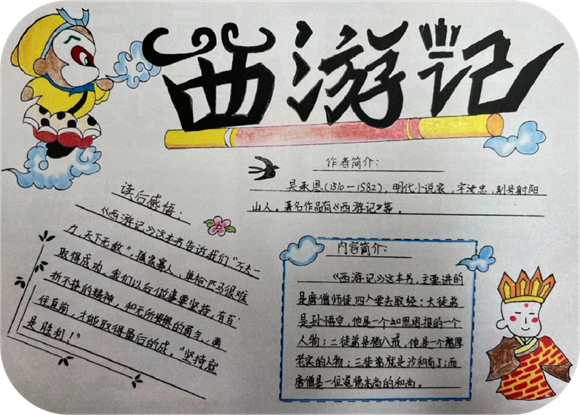 西游记
作者简介:
吴承恩(1310—1582),明代小说家,字汝忠,别号射阳
山人。著名作品有《西游记》等。
读后感悟:
《西游记》这本书告诉我们“万夫一
力,天下无敌”,
取得成功,我们以后做事要坚持,有百
折不挠的精神,和无所畏惧的勇气,勇
往直前,才能取得最后的成。“坚持就
是胜利!”
内容简介:
《西游记》这本书,主要讲的
是唐僧师徒四人要去取经;大徒弟
是孙悟空,他是一个知恩图报的一个
人物;二徒弟是猪八戒,他是一个憨厚
老实的人物;三徒弟就是沙和尚了;而
唐僧是一位道德高尚的和尚。